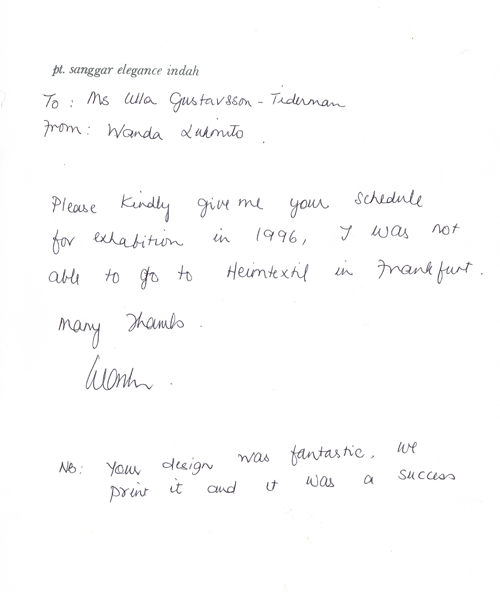 pt. sanggar elegance indah
To : Ms Ulla Gustavsson - Tiderman
From : Wanda Lukmito
Please kindly give me your schedule
for exhabition in 1996, I was not
able to go to Heimtextil in Frankfurt.
Many Thanks.
Wanda.
NB: Your design was fantastic, we
print it and it was a success